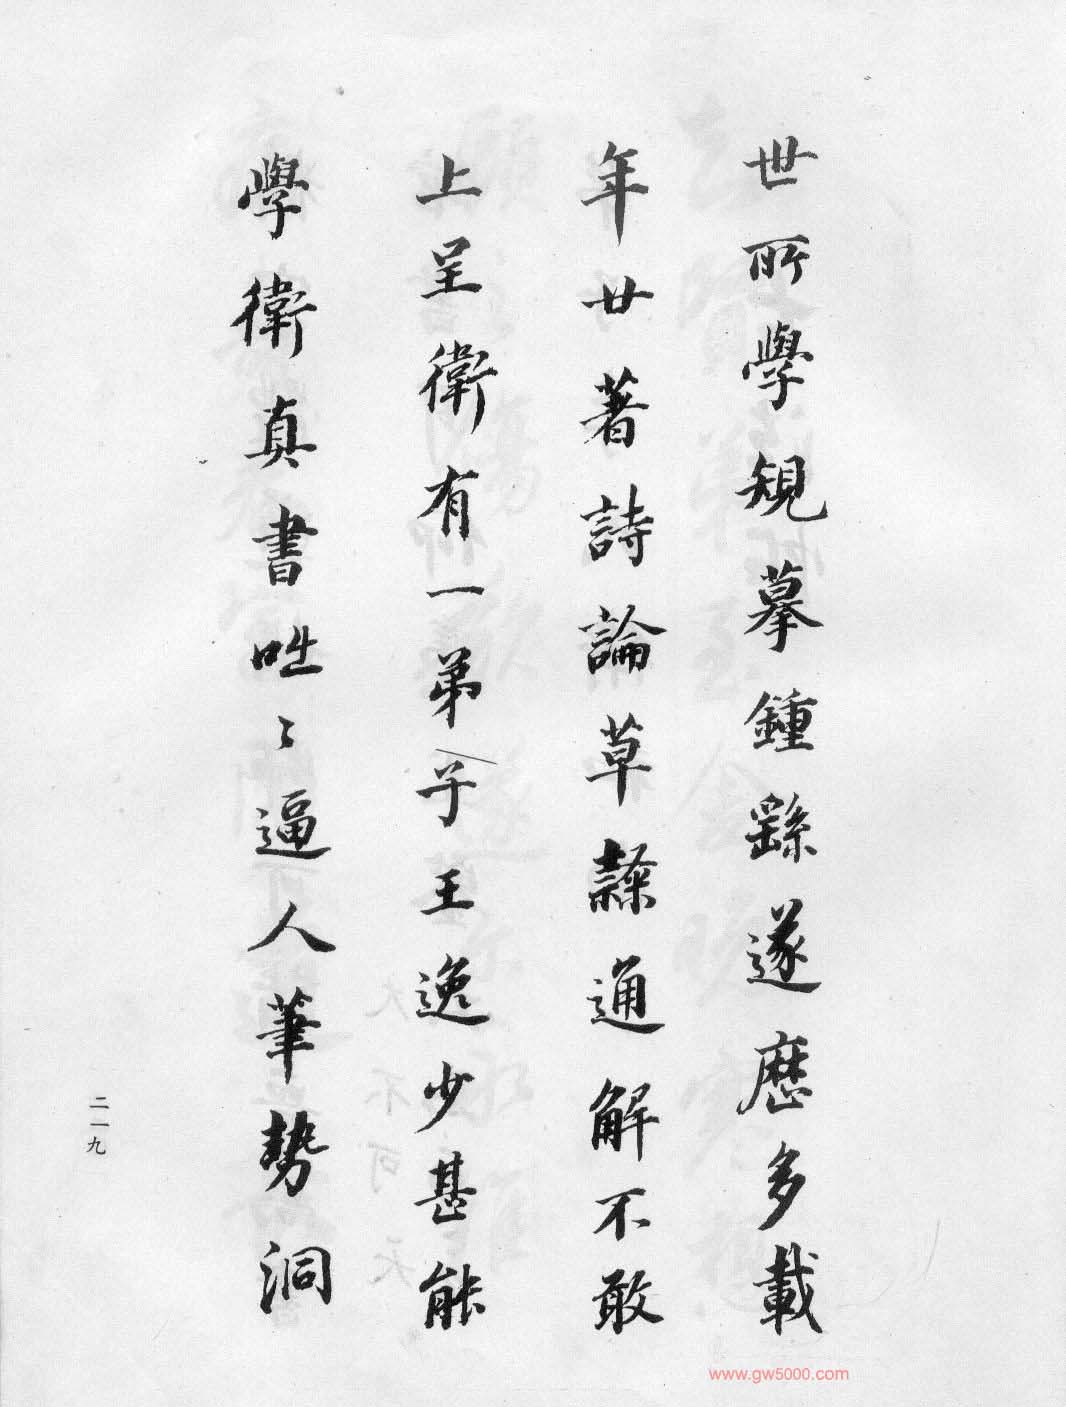 世所學規摹鍾繇遂歷多載
年廿著詩論草隸通解不敢
上呈衛有一弟子王逸少甚能
學衛真書咄〻逼人筆勢洞
二一九
www.gw5000.com